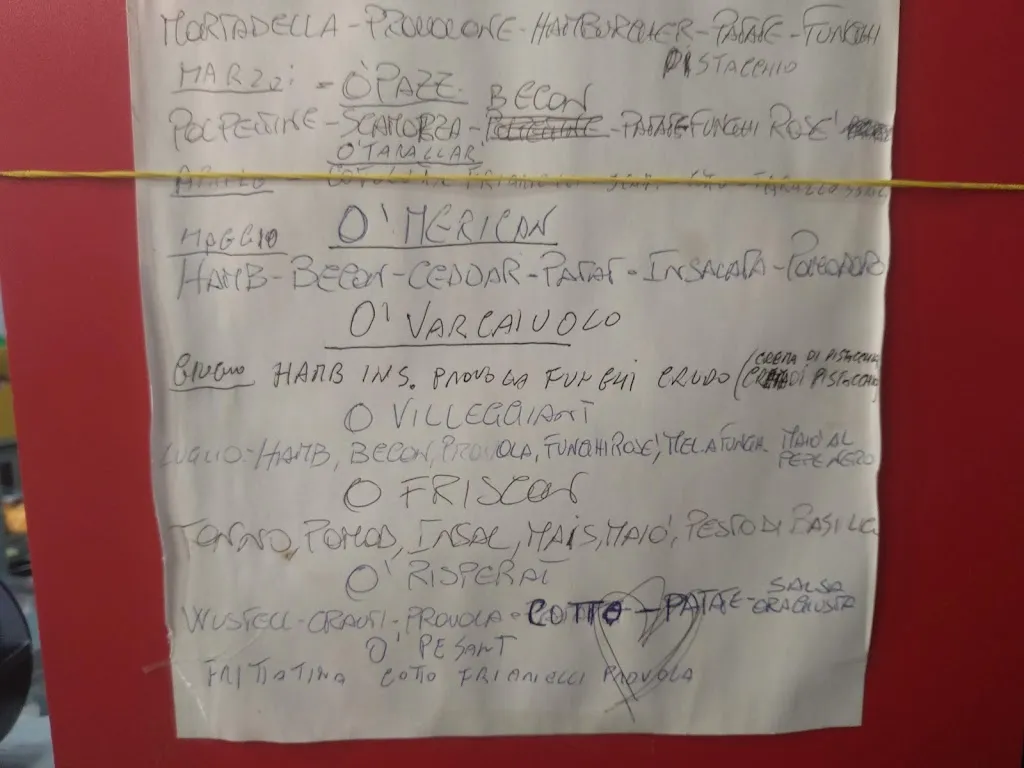 MORTADELLA - PROVOLONE - HAMBURGHER - PATATE - FUNGHI
PISTACCHIO
MARZO: - O'PAZZ BECON
POLPETTINE - SCAMORZA - PATATE FUNGHI ROSE'
O'TARALLAR'
APRILE
MAGGIO O' MERICAN
HAMB - BECON - CEDDAR - PATAT - INSALATA - POMODORO
O' VARCAIUOLO
GIUGNO HAMB INS. PROVOLA FUNGHI CRUDO (CREMA DI PISTACCHIO
DI PISTACCHIO)
O VILLEGGIANT
LUGLIO - HAMB, BECON, PROVOLA, FUNGHI ROSE', MELAFUNGA MAIO' AL
PEPE NERO
O FRISCON
TONNO, POMOD, INSAL, MAIS, MAIO', PESTO DI BASILICO
O' RISPERAT
WUSTELL - CRAUTI - PROVOLA - COTTO - PATATE - SALSA
GRAGIUSTA
O' PESANT
FRITTATINA COTTO FRIARIELLI PROVOLA